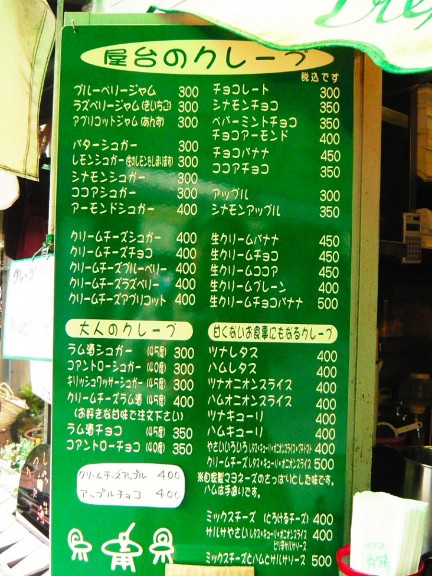 屋台のクレープ
税込です
ブルーベリージャム 300
ラズベリージャム(きいちご) 300
アプリコットジャム(あんず) 300
バターシュガー 300
レモンシュガー 300
シナモンシュガー 300
ココアシュガー 300
アーモンドシュガー 400
クリームチーズシュガー 400
クリームチーズチョコ 400
クリームチーズブルーベリー 400
クリームチーズラズベリー 400
クリームチーズアプリコット 400
大人のクレープ
ラム酒シュガー (45度) 300
コアントローシュガー (40度) 300
キリッシュワッサーシュガー (45度) 300
クリームチーズラム酒 (45度) 400
(お好きな甘味で注文下さい)
ラム酒チョコ (45度) 350
コアントローチョコ (40度) 350
クリームチーズアップル 400
アップルチョコ 400
チョコレート 300
シナモンチョコ 350
ペパーミントチョコ 350
チョコアーモンド 400
チョコバナナ 450
ココアチョコ 350
アップル 300
シナモンアップル 350
生クリームバナナ 450
生クリームチョコ 450
生クリームココア 450
生クリームプレーン 400
生クリームチョコバナナ 500
甘くないお食事にもなるクレープ
ツナレタス 400
ハムレタス 400
ツナオニオンスライス 400
ハムオニオンスライス 400
ツナキューリ 400
ハムキューリ 400
やさいいろいろ 400
クリームチーズ 500
ハムは手造りです。
ミックスチーズ (とろけるチーズ) 400
サルサやさい 400
ピリ辛サルサソース
ミックスチーズとハムとサルサソース 500